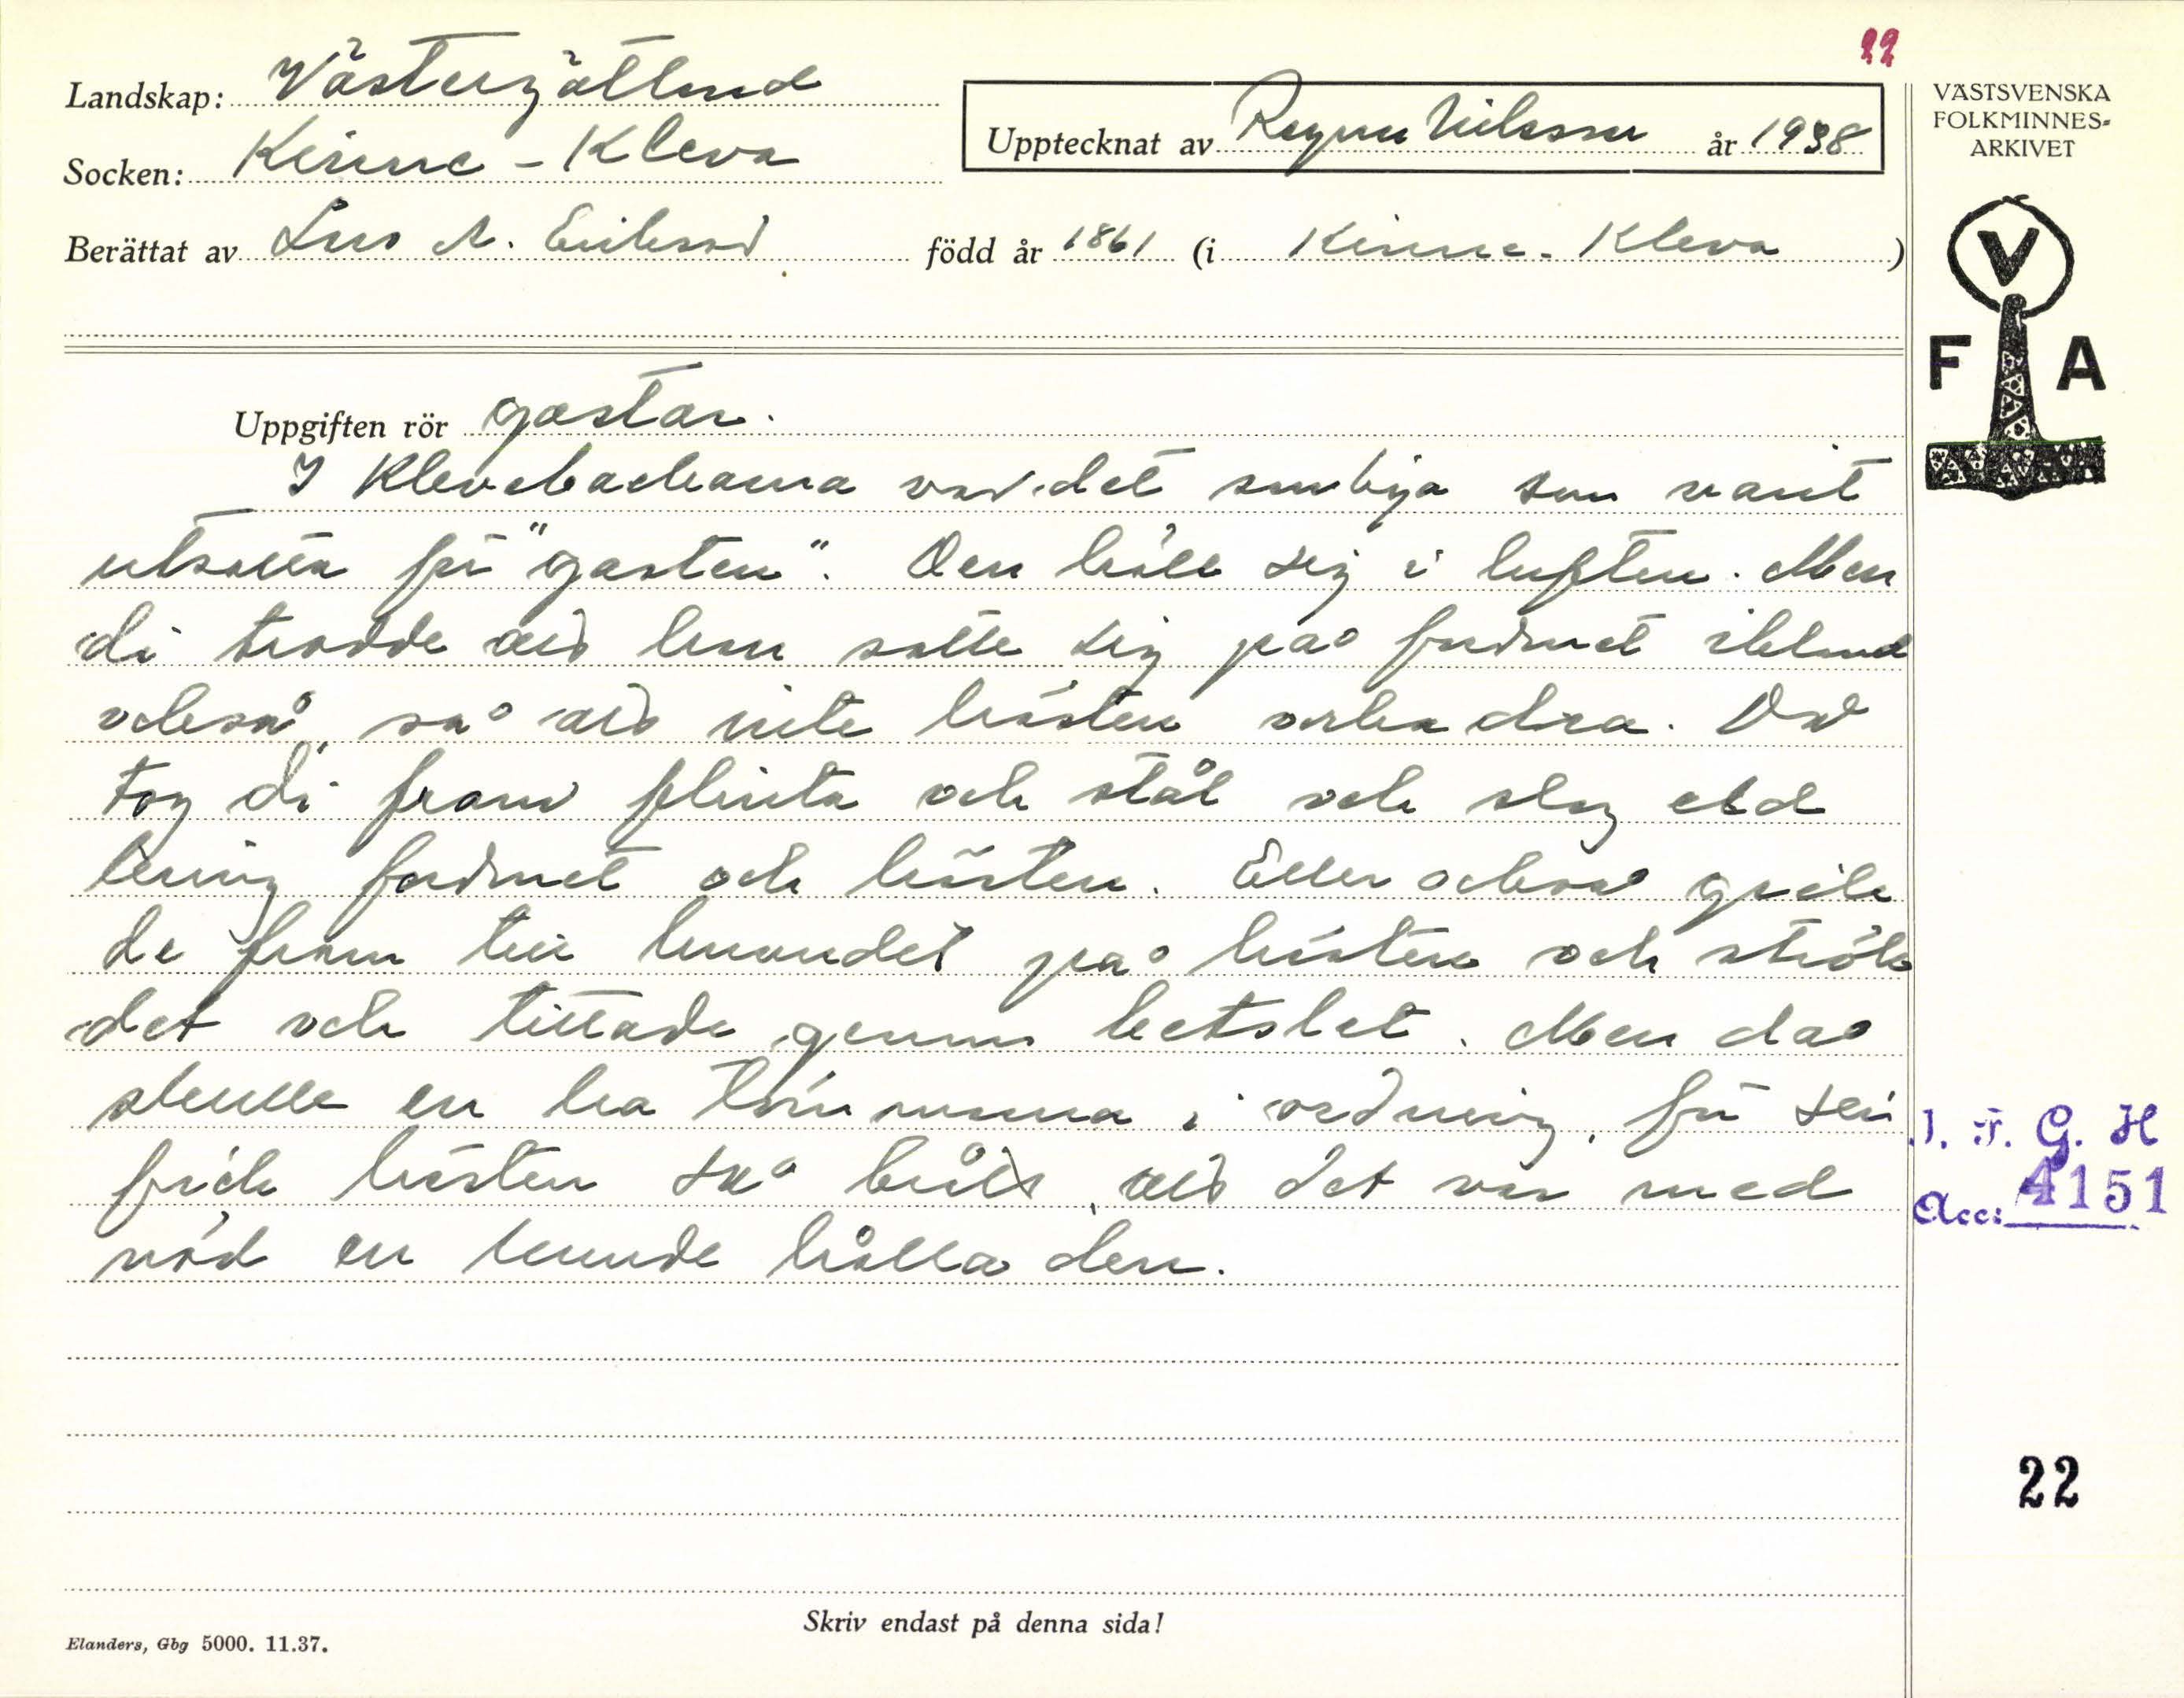 22
Landskap: Västergötland
Socken: Kinne-Kleva
Upptecknat av Ragnar Nilsson år 1938
Berättat av Lars A. Eriksson född år 1861 (i Kinne-Kleva)
VÄSTSVENSKA
FOLKMINNES-
ARKIVET
V
F A
Uppgiften rör gastar.
I Klevabackarna var det många som varit
utsatta för "gasten". Den höll sig i luften. Men
di trodde att han satte sig på fordonet ibland
också, så att inte hästen orka dra. Då
tog di fram flinta och stål och slog eld
kring fordonet och hästen. Eller också gick
de fram till huvudet på hästen och strök
det och tittade genom betslet. Men då
skulle en ha tömmarna i ordning, för sen
fick hästen så brått, att det var med
nöd en kunde hålla den.
I. F. G. H
Acc: 4151
22
Skriv endast på denna sida!
Elanders, Gbg 5000. 11.37.